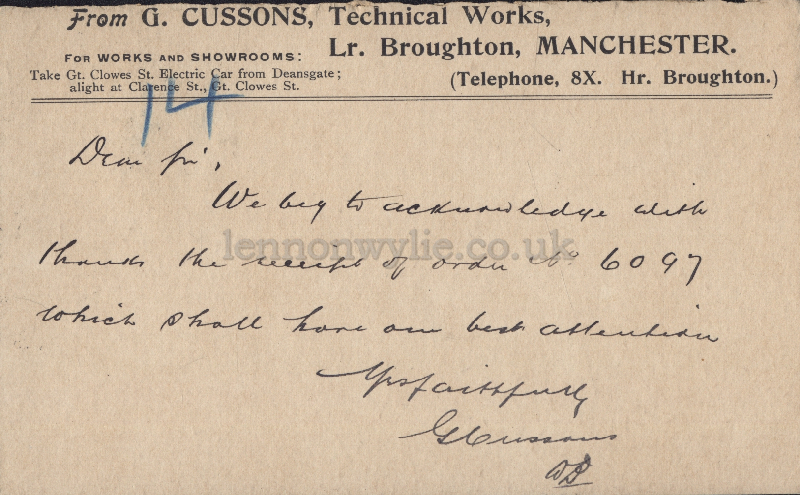 From G. CUSSONS, Technical Works,
Lr. Broughton, MANCHESTER.
FOR WORKS AND SHOWROOMS:
Take Gt. Clowes St. Electric Car from Deansgate;
alight at Clarence St., Gt. Clowes St.
(Telephone, 8X. Hr. Broughton.)
14
Dear Sir,
We beg to acknowledge with
thanks the receipt of order No 6097
which shall have our best attention
Yrs faithfully
G Cussons
lennonwylie.co.uk